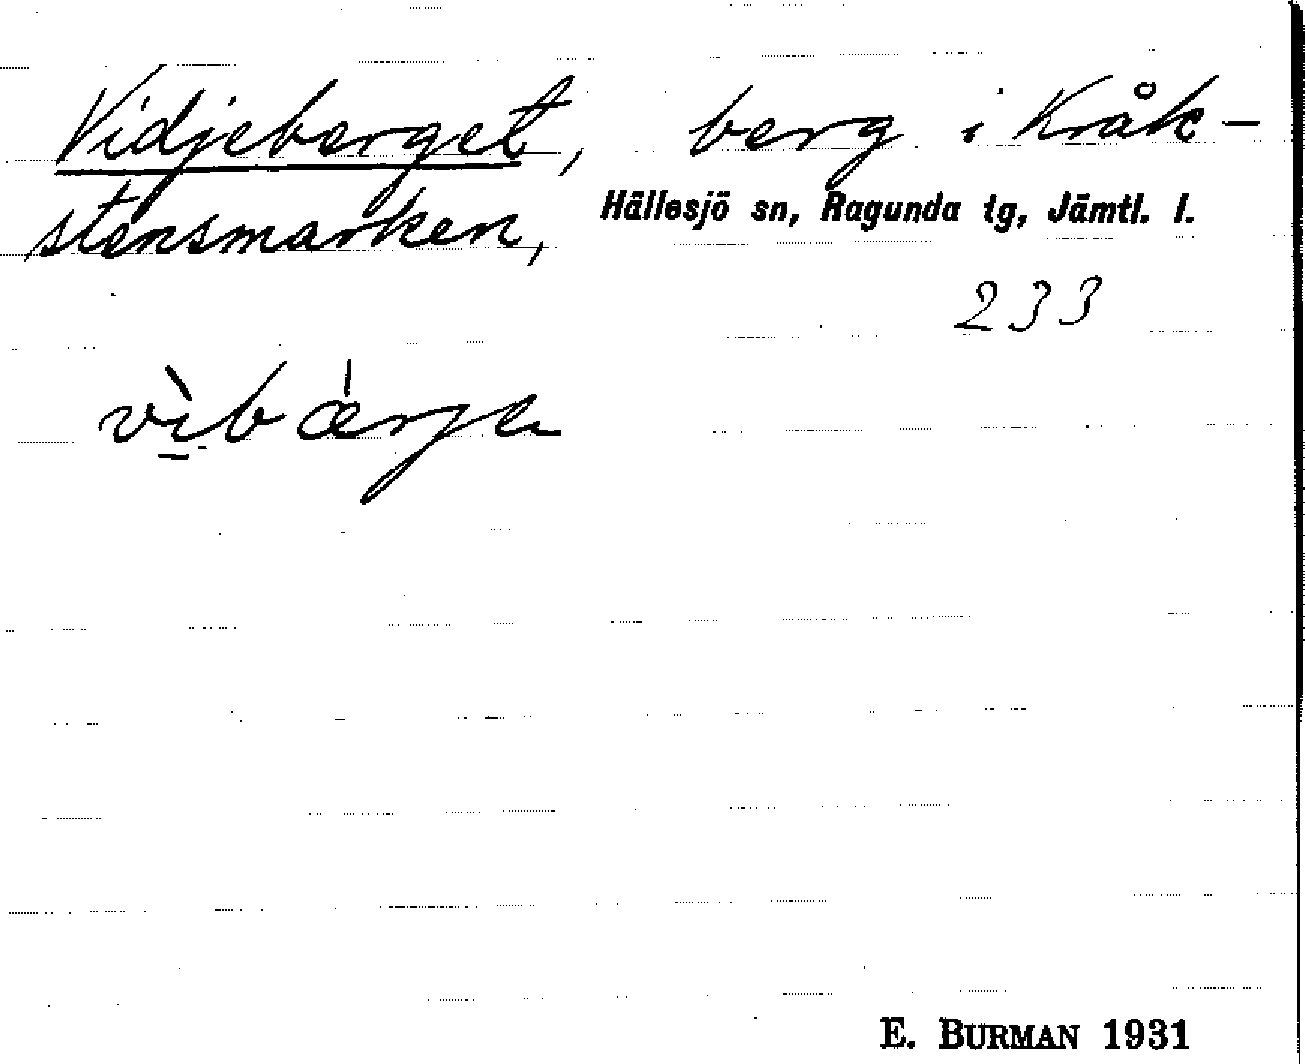 Vidjeberget, berg i Kråk-
stensmarken, Hällesjö sn, Ragunda tg, Jämtl. l.
233
vìbærje
E. BURMAN 1931